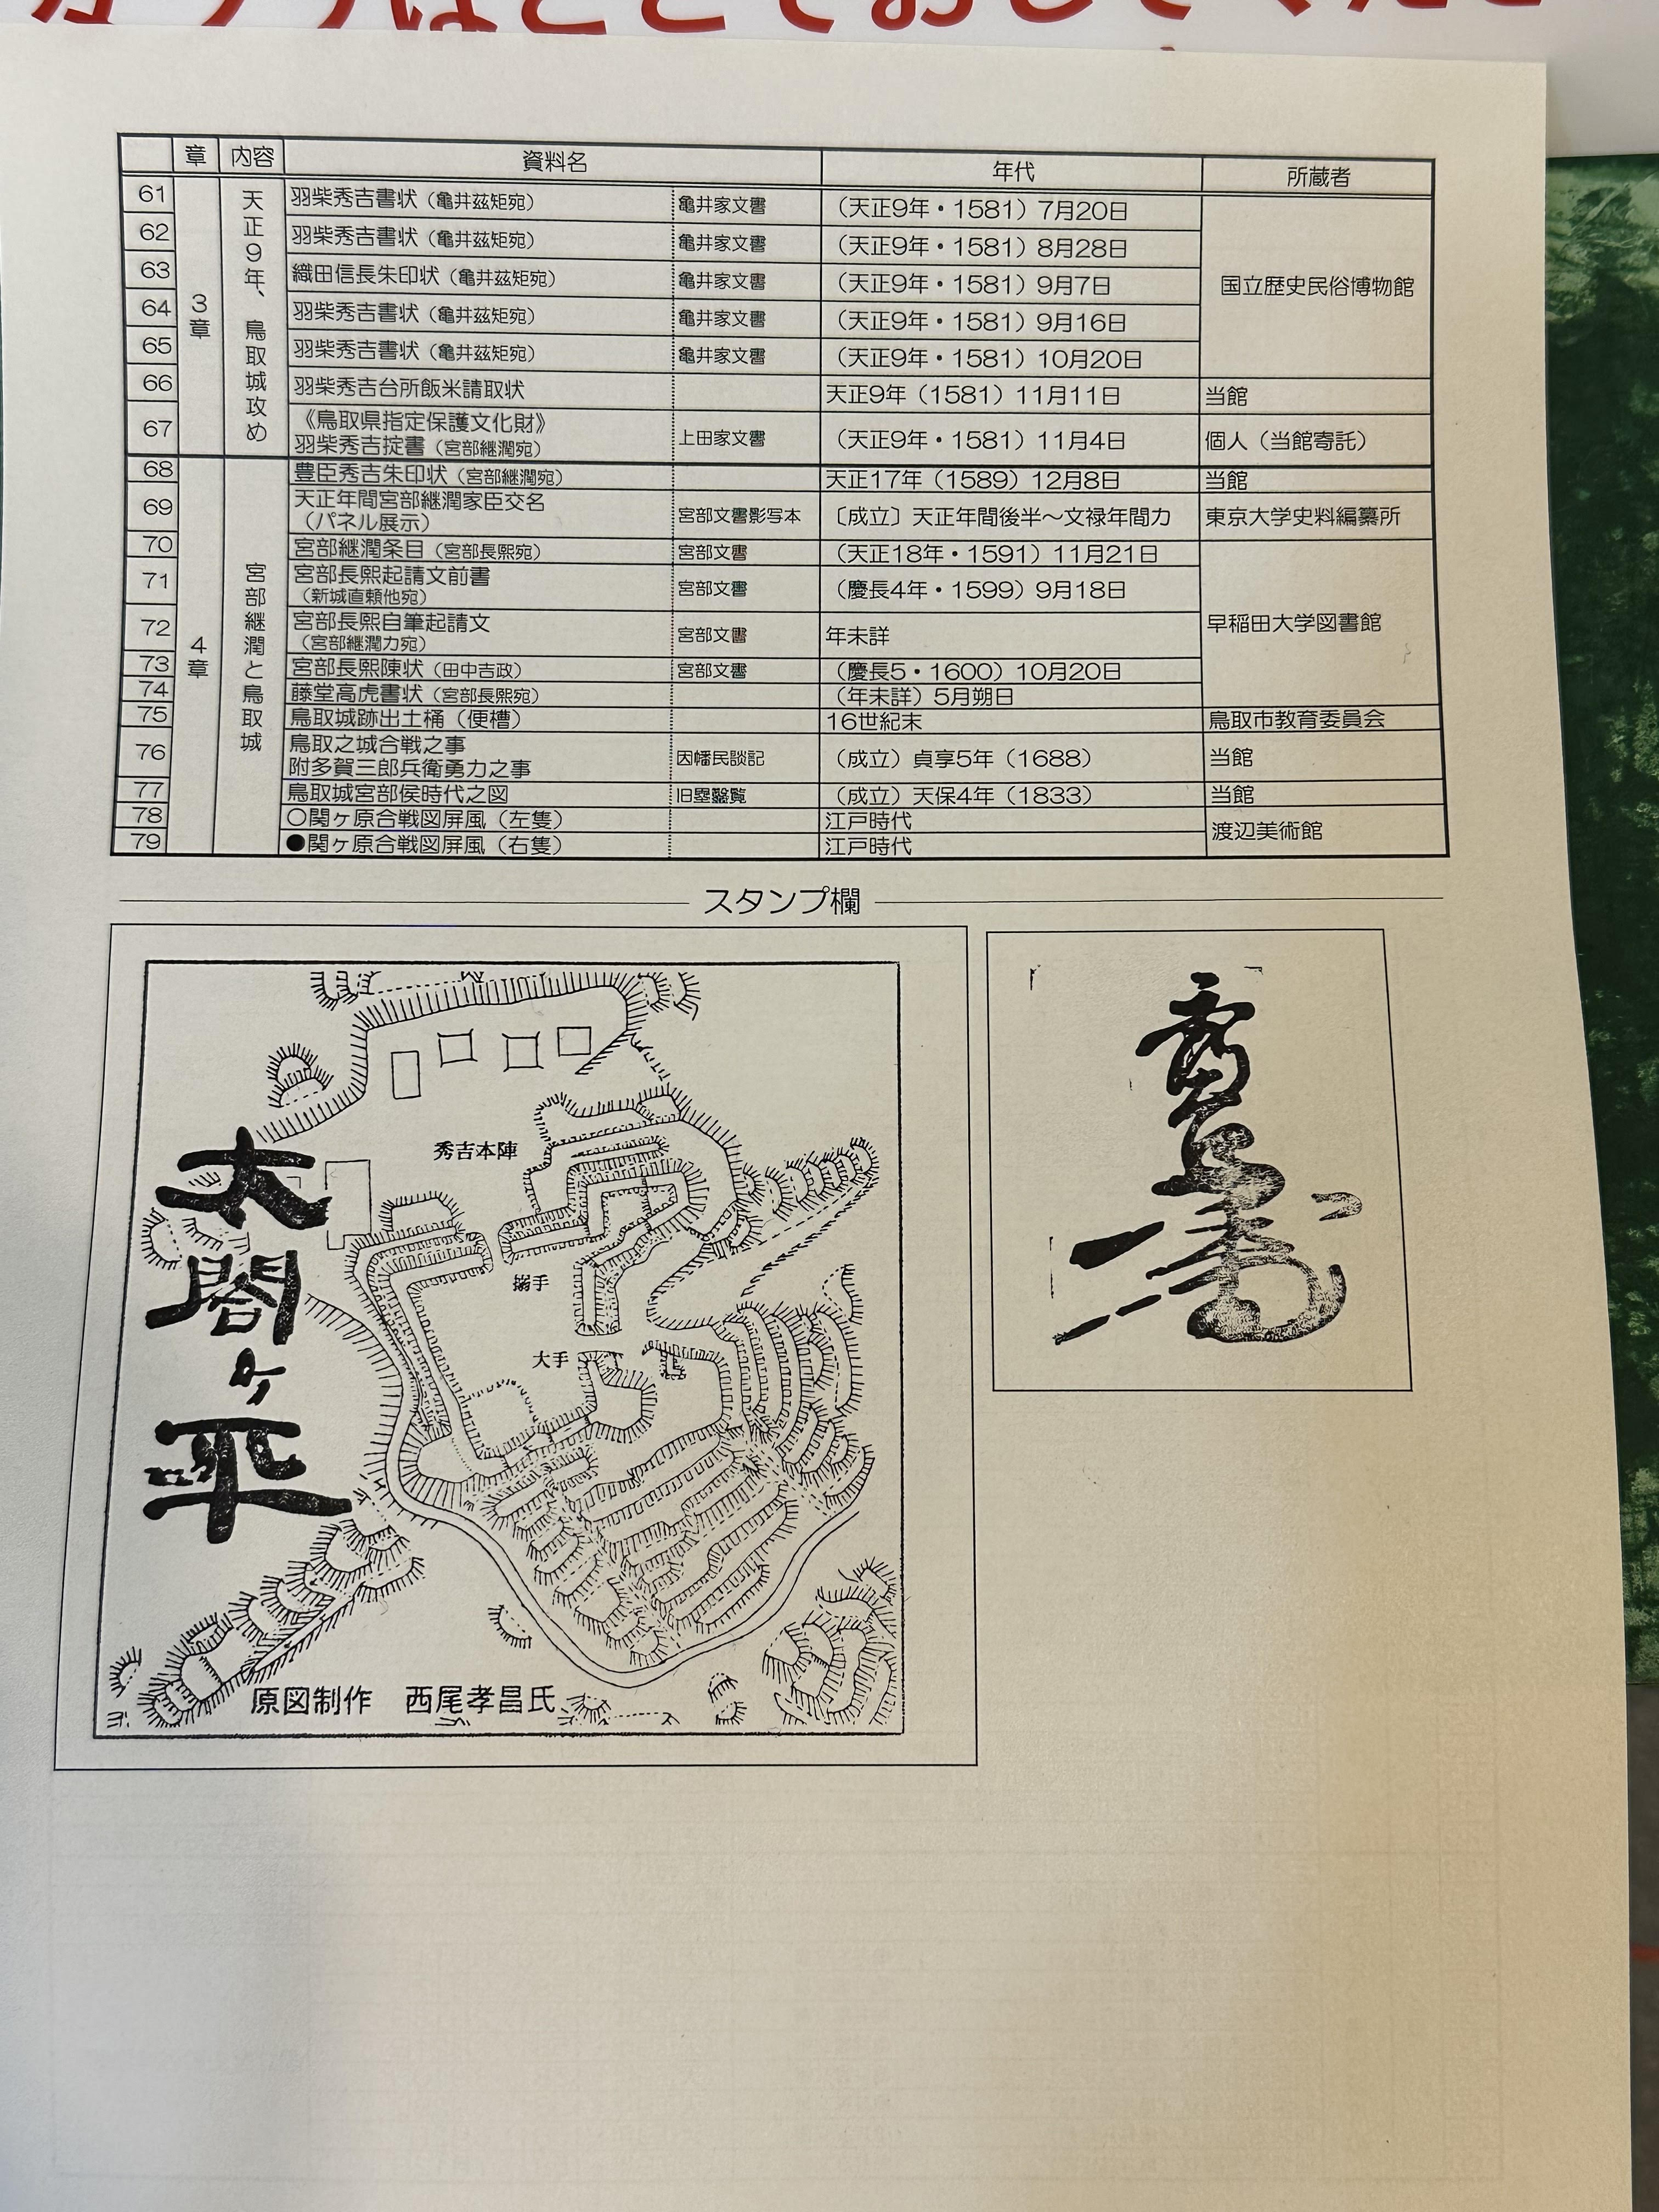 章 内容 資料名 年代 所蔵者
3章 天正9年、鳥取城攻め
61 羽柴秀吉書状（亀井茲矩宛） 亀井家文書 （天正9年・1581）7月20日 国立歴史民俗博物館
62 羽柴秀吉書状（亀井茲矩宛） 亀井家文書 （天正9年・1581）8月28日
63 織田信長朱印状（亀井茲矩宛） 亀井家文書 （天正9年・1581）9月7日
64 羽柴秀吉書状（亀井茲矩宛） 亀井家文書 （天正9年・1581）9月16日
65 羽柴秀吉書状（亀井茲矩宛） 亀井家文書 （天正9年・1581）10月20日
66 羽柴秀吉台所飯米請取状 天正9年（1581）11月11日 当館
67 《鳥取県指定保護文化財》
羽柴秀吉掟書（宮部継潤宛） 上田家文書 （天正9年・1581）11月4日 個人（当館寄託）
4章 宮部継潤と鳥取城
68 豊臣秀吉朱印状（宮部継潤宛） 天正17年（1589）12月8日 当館
69 天正年間宮部継潤家臣交名
（パネル展示） 宮部文書影写本 〔成立〕天正年間後半～文禄年間カ 東京大学史料編纂所
70 宮部継潤条目（宮部長熙宛） 宮部文書 （天正18年・1591）11月21日 早稲田大学図書館
71 宮部長熙起請文前書
（新城直頼他宛） 宮部文書 （慶長4年・1599）9月18日
72 宮部長熙自筆起請文
（宮部継潤カ宛） 宮部文書 年未詳
73 宮部長熙陳状（田中吉政） 宮部文書 （慶長5・1600）10月20日
74 藤堂高虎書状（宮部長熙宛） （年未詳）5月朔日
75 鳥取城跡出土桶（便槽） 16世紀末 鳥取市教育委員会
76 鳥取之城合戦之事
附多賀三郎兵衛勇力之事 因幡民談記 （成立）貞享5年（1688） 当館
77 鳥取城宮部侯時代之図 旧塁鑿覧 （成立）天保4年（1833） 当館
78 ○関ヶ原合戦図屏風（左隻） 江戸時代 渡辺美術館
79 ●関ヶ原合戦図屏風（右隻） 江戸時代
スタンプ欄
太閤ヶ平
秀吉本陣
搦手
大手
原図制作 西尾孝昌氏